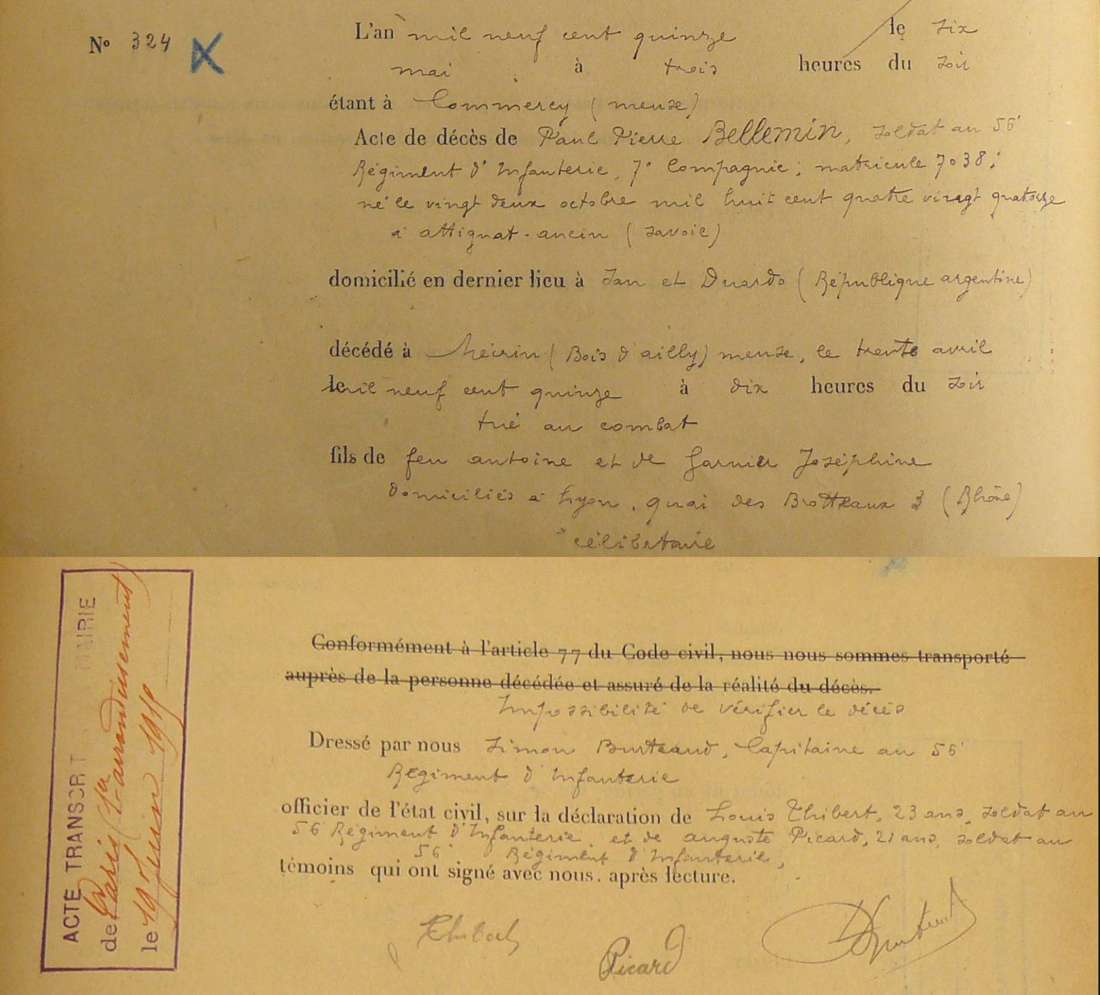 N° 324
L'an mil neuf cent quinze le six
mai à trois heures du soir
étant à Commercy (meuse)
Acte de décès de Paul Pierre Bellemin, soldat au 56e
Régiment d'Infanterie, 7e Compagnie; matricule 7038;
né le vingt deux octobre mil huit cent quatre vingt quatorze
à attignat-oncin (savoie)
domicilié en dernier lieu à San et Duardo (République argentine)
décédé à (Bois d'ailly) meuse, le trente avril
mil neuf cent quinze à dix heures du soir
tué au combat
fils de feu antoine et de Garnier Joséphine
domiciliés à Lyon, quai des Brotteaux 3 (Rhône)
célibataire
ACTE TRANSCRIT MAIRIE
de Paris (1er arrondissement)
le 19
Conformément à l'article 77 du Code civil, nous nous sommes transporté
auprès de la personne décédée et assuré de la réalité du décès.
Impossibilité de vérifier le décès
Dressé par nous Simon, Capitaine au 56e
Régiment d'Infanterie
officier de l'état civil, sur la déclaration de Louis Thibert, 23 ans, soldat au
56 Régiment d'Infanterie, et de auguste Picard, 21 ans, soldat au
56 Régiment d'Infanterie,
témoins qui ont signé avec nous. après lecture.
Picard